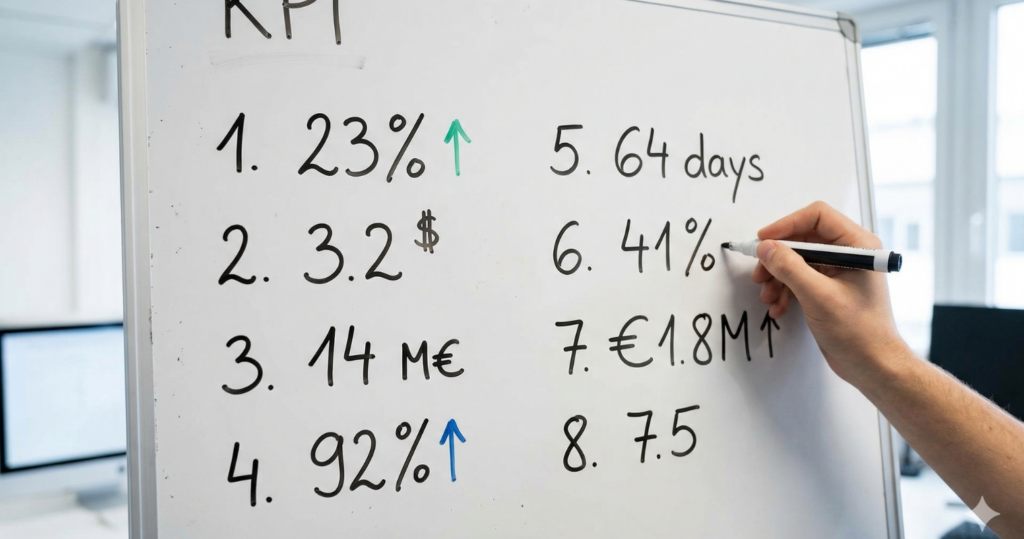 KPI
1. 23% ↑
2. 3.2 $
3. 14 M€
4. 92% ↑
5. 64 days
6. 41%
7. €1.8M ↑
8. 7.5